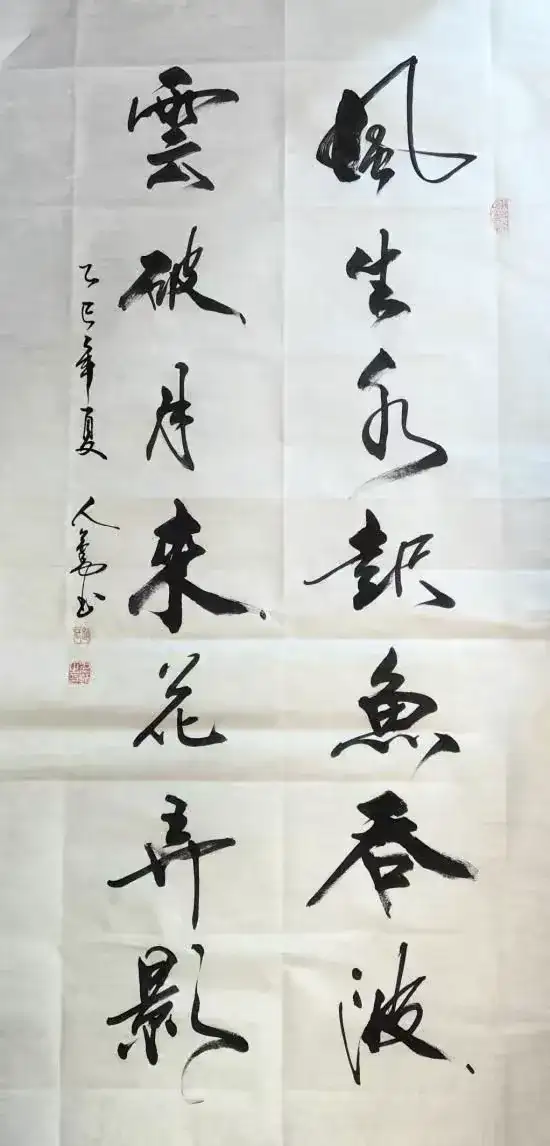 風生水起魚吞波
雲破月來花弄影
乙巳年夏 人
書